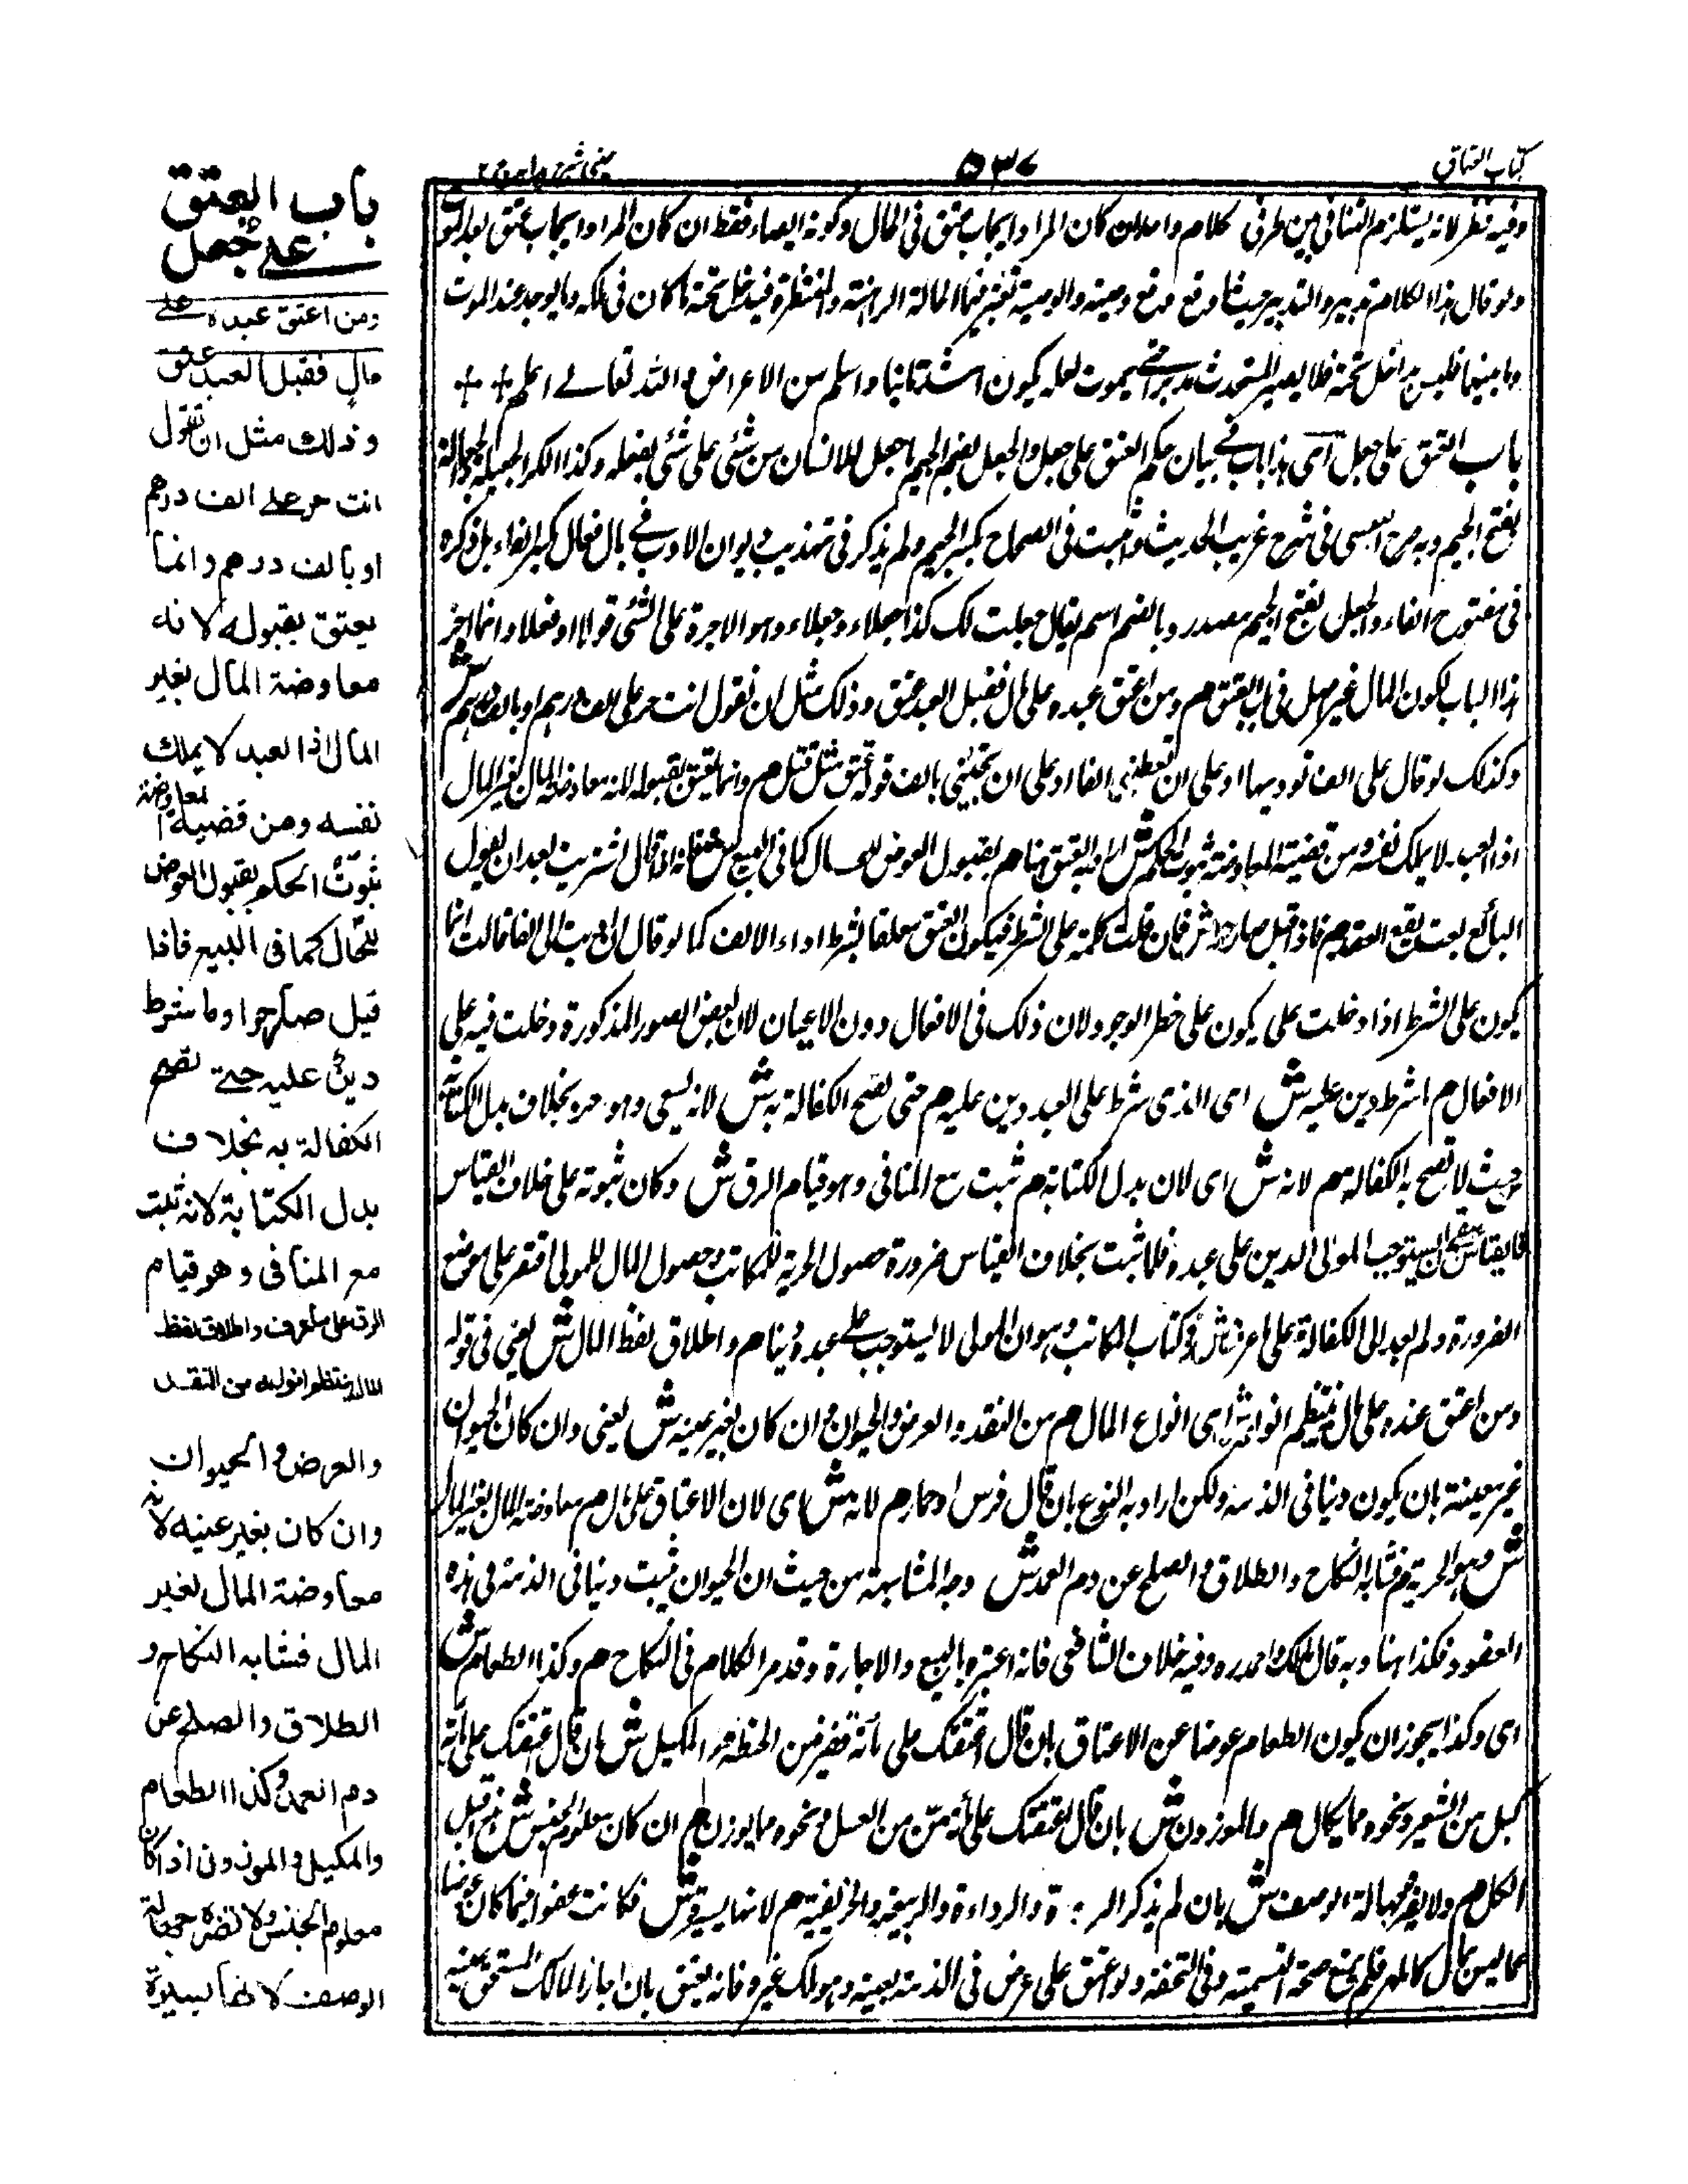 كتاب العتاق
٥٣٧
عينى شرح هدايه ج ٢
وفيه نظر لانه يستلزم التنافى بين طرفى كلام واحد لان كان المراد ايجاب عتق فى المال وكونه ايصاء فقط ان كان المراد ايجاب عتق بعد الموت
ولو قال هذا الكلام تدبير والتدبير حيث ما وقع وقع وصيته والوصية تعتبر فيها الحالة الراهنة والمنتظرة فيدخل تحته ما كان فى ملكه وما يوجد عند الموت
وما بينهما فليس بداخل تحته فلا يصير المستحدث مدبرا حتى يموت لعله يكون اشد تانيا واسلم من الاعراض والله تعالے اعلم
باب العتق على جعل اى هذا باب فے بيان حكم العتق على جعل والجعل بضم الجيم ما جعل للانسان من شئ على شئ يفعله وكذا الجعيلة والجعالة
بفتح الجيم وبه صرح فى شرح غريب الحديث واثبت فى الصحاح بكسر الجيم ولم يذكر فى تهذيب ديوان الادب فے باب فعال بكسر الفاء بل ذكره
فى مفتوح الفاء والجعل بفتح الجيم مصدر وبالضم اسم يقال جعلت لك كذا جعلا وجعلا وهو الاجرة على الشئ قولا او فعلا وانما اخر
هذا الباب لكون المال غير اصل فى باب العتق م ومن اعتق عبده على مال فقبل العبد عتق وذلك مثل ان تقول انت حر على الف درهم او بالف درهم ش
وكذلك لو قال على الف تؤديها او على ان تعطينى الفا او على ان تجيئنى بالف قوله عتق مثل قبل م وانما يعتق بقبوله لانه معاوضة المال بغير المال
اذ العبد لا يملك نفسه ومن قضية المعاوضة ثبوت الحكم ش اراد به العتق هنا م بقبول العوض للحال كما فى البيع ش فانه اذا قال اشتريت بعد ان يقول
البائع بعت يقع العقد م فاذا قبل صار حرا ش فان قلت كلمة على للشرط فيكون العتق معلقا بشرط اداء الالف كما لو قال ان اديت الى الفا قالت انما
يكون على للشرط اذا دخلت على يكون على خطر الوجود لان ذلك فى الافعال دون الاعيان لان بعض الصور المذكورة دخلت فيه على
الافعال م وما شرط دين عليه ش اى الذى شرط على العبد دين عليه م حتى تصح الكفالة به ش لانه يسعى وهو حر م بخلاف بدل الكتابة ش
حيث لا تصح به الكفالة م لانه ش اى لان بدل الكتابة م ثبت مع المنافى وهو قيام الرق ش وكان ثبوته على خلاف القياس
فالقياس ان يستوجب المولى الدين على عبده فلما ثبت بخلاف القياس ضرورة حصول الحرية للمكاتب وحصول المال للمولى اقتصر على موضع
الضرورة ولم يعد الى الكفالة م على ما عرف ش فى كتاب المكاتب وهو ان المولى لا يستوجب علے عبده دينا م واطلاق لفظ المال ش يعنى فى قوله
ومن اعتق عبده على مال م ينتظم انواعه ش اى انواع المال م من النقد والعرض والحيوان وان كان بغير عينه ش يعنى وان كان الحيوان
غير معينة بان يكون دينا فى الذمة ولكن اراد به النوع بان قال فرس او حمار م لانه ش اى لان الاعتاق على مال م معاوضة المال بغير المال
ش وهو الحرية م فشابه النكاح والطلاق والصلح عن دم العمد ش وجه المشابهة من حيث ان الحيوان يثبت دينا فى الذمة فى هذه
العقود فكذا هنا وبه قال مالك واحمد رح وفيه خلاف الشافعى فانه اعتبره بالبيع والاجارة وقد مر الكلام فى النكاح م وكذا الطعام ش
اى وكذا يجوز ان يكون الطعام عوضا عن الاعتاق بان قال اعتقتك على مائة قفيز من الحنطة م والمكيل ش بان قال اعتقتك على مائة
كيل من الشعير ونحوه مما يكال م والموزون ش بان قال اعتقتك على مائة من من العسل ونحوه مما يوزن م اذا كان معلوم الجنس ش
الكل م ولا يضره جهالة الوصف ش بان لم يذكر الجودة والرداءة والربيعية والخريفية م لانها يسيرة ش فكانت عفوا فيما كان عوضا
عما ليس بمال كالمهر فلم يمنع صحة التسمية وفى التحفة ولو اعتق على عرض فى الذمة بعينه وهو ملك غيره فانه يعتق بان اجاز المالك المستحق بعينه
باب العتق
علے جعل
ومن اعتق عبده علے
مال فقبل العبد عتق
وذلك مثل ان تقول
انت حر علے الف درهم
او بالف درهم وانما
يعتق بقبوله لانه
معاوضة المال بغير
المال اذ العبد لا يملك
نفسه ومن قضية المعاوضة
ثبوت الحكم بقبول العوض
للحال كما فى البيع فاذا
قبل صار حرا وما شرط
دين عليه حتے تصح
الكفالة به بخلاف
بدل الكتابة لانه ثبت
مع المنافى وهو قيام
الرق على ما عرف واطلاق لفظ
المال ينتظم انواعه من النقد
والعرض والحيوان
وان كان بغير عينه لانه
معاوضة المال بغير
المال فشابه النكاح و
الطلاق والصلح عن
دم العمد وكذا الطعام
والمكيل والموزون اذا كان
معلوم الجنس ولا تضره جهالة
الوصف لانها يسيرة